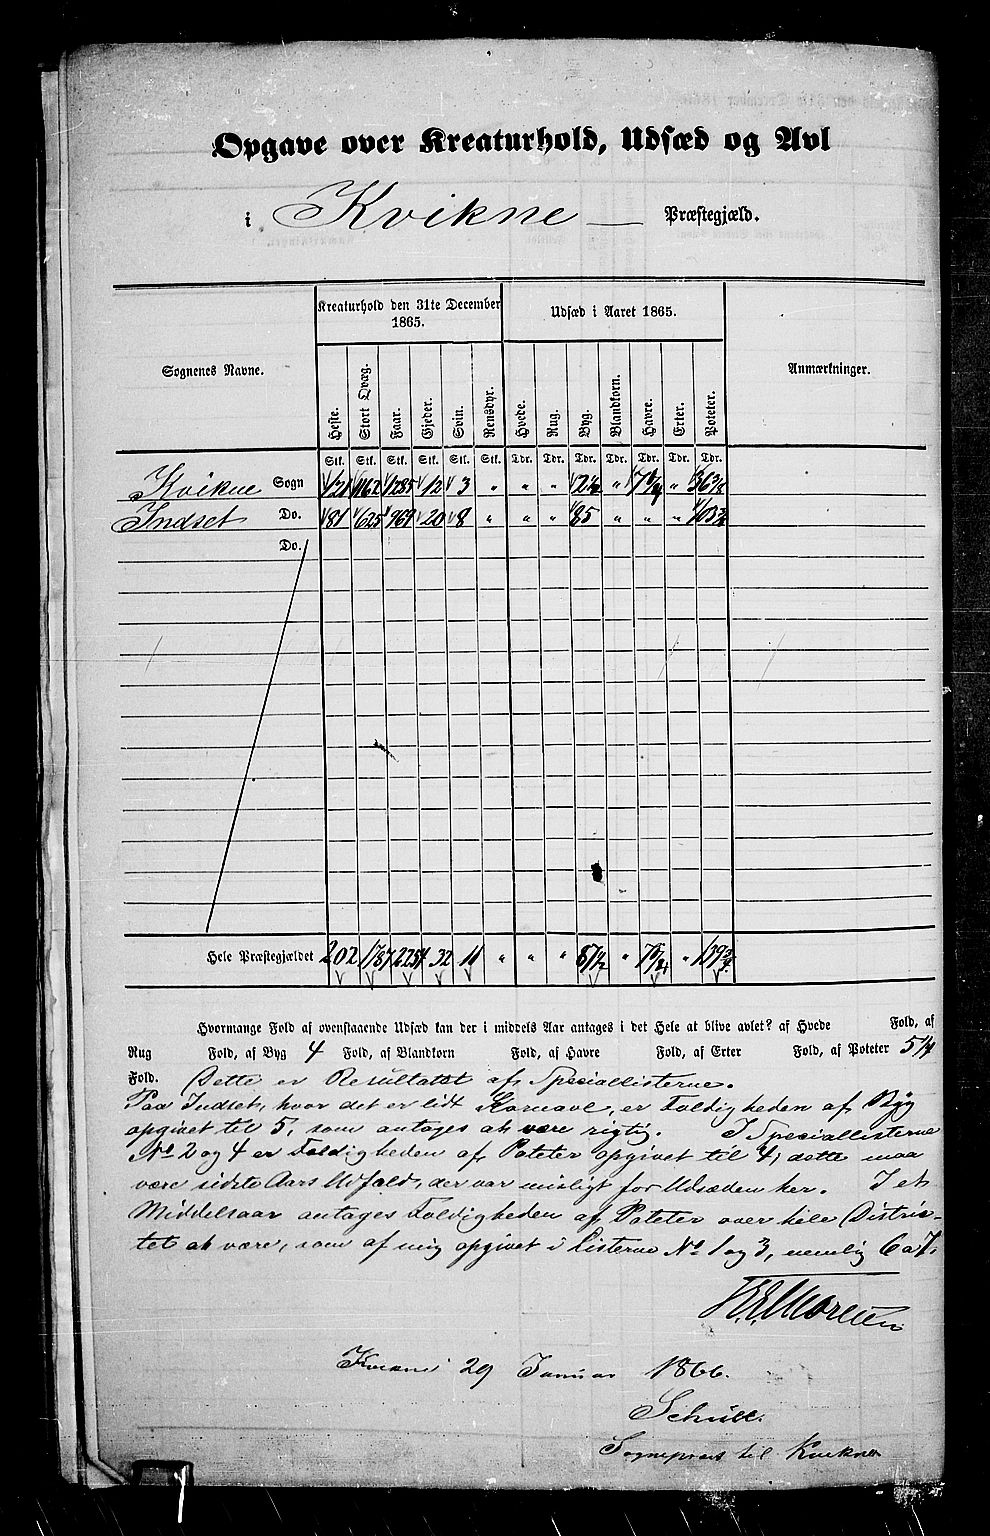 Opgave over Kreaturhold, Udsæd og Avl
i Kvikne Præstegjæld.
Kreaturhold den 31te December 1865.
Udsæd i Aaret 1865.
Sognenes Navne.
Anmærkninger.
Heste. Stort Qvæg. Faar. Gjeder. Svin. Rensdyr. Hvede. Rug. Byg. Blandkorn. Havre. Erter. Poteter.
Stk. Stk. Stk. Stk. Stk. Stk. Tdr. Tdr. Tdr. Tdr. Tdr. Tdr. Tdr.
Kvikne Sogn 121 1162 1285 12 3 " " " 2 1/2 " " 36 3/8
Indset Do. 81 625 969 20 8 " " " 85 " " " 103
Do.
Hele Præstegjældet 202 1787 2254 32 11 " " " 87 1/2 " "
Hvormange Fold af ovenstaaende Udsæd kan der i middels Aar antages i det Hele at blive avlet? af Hvede Fold, af
Rug Fold, af Byg 4 Fold, af Blandkorn Fold, af Havre Fold, af Erter Fold, af Poteter 5 1/4
Fold. Dette er Resultatet af Speciallisterne.
Paa Indset, hvor det er lidt Kornavl, er Foldigheden af Byg
opgivet til 5, som antages at være rigtig. I Speciallisterne
No 2 og 4 er Foldigheden af Poteter opgivet til 4, dette maa
være sidste Aars Udfald, der var misligt for Udsæden her. I et
Middelsaar antages Foldigheden af Poteter over hele Distric-
tet at være, som af mig opgivet i Listerne No 1 og 3, nemlig 6 a 7.
29 Januar 1866.
Sognepræst til Kvikne